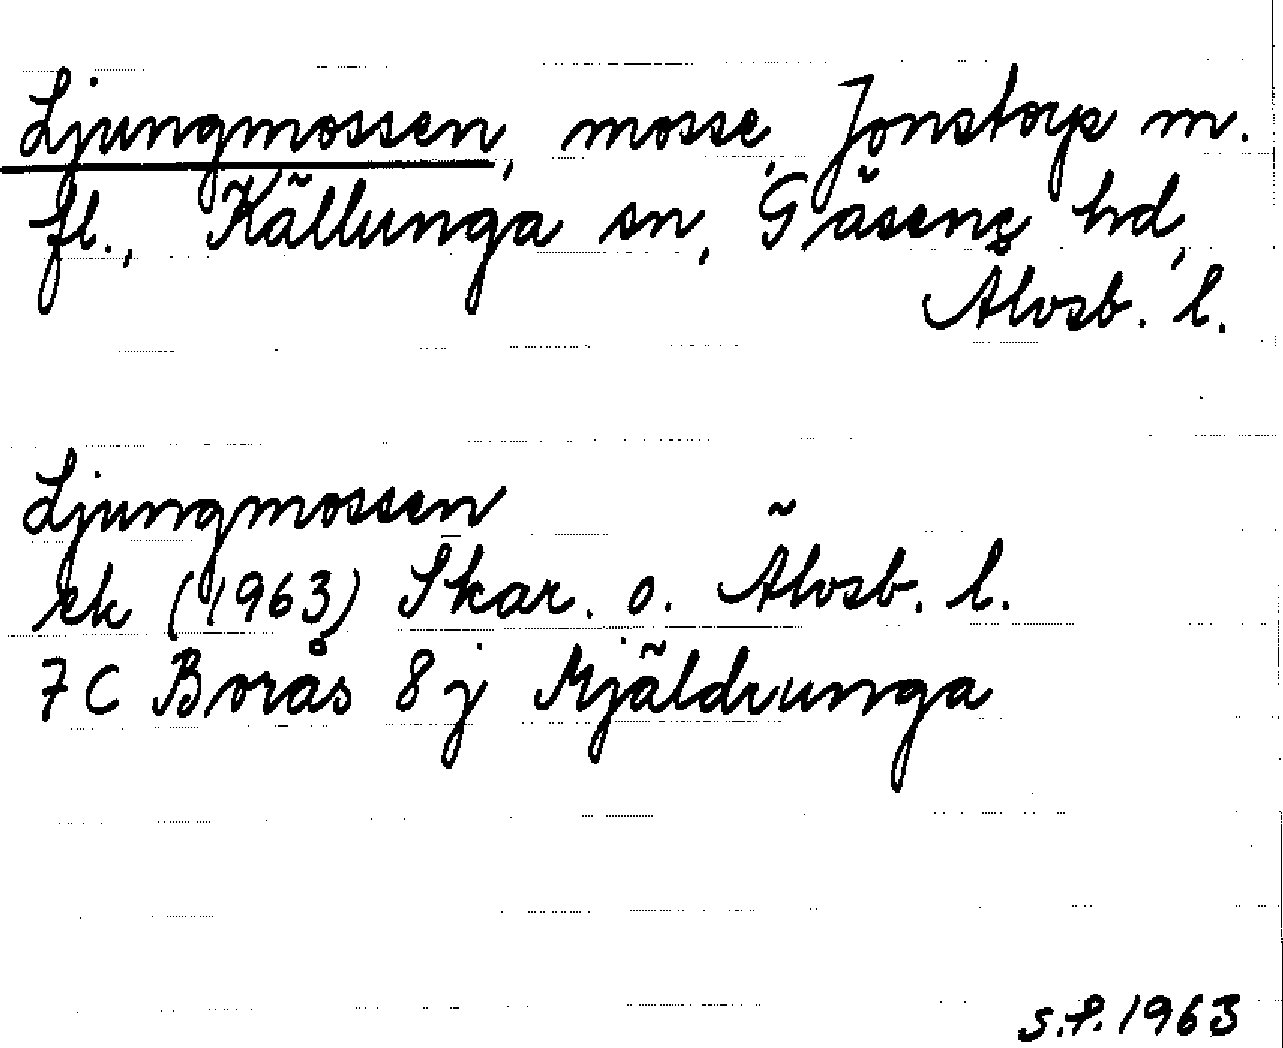 Ljungmossen, mosse, Jonstorp m.
fl., Källunga sn, Gäsene hd,
Älvsb. l.
Ljungmossen
ek (1963) Skar. o. Älvsb. l.
7 C Borås 8 j Mjäldrunga
s.f. 1963